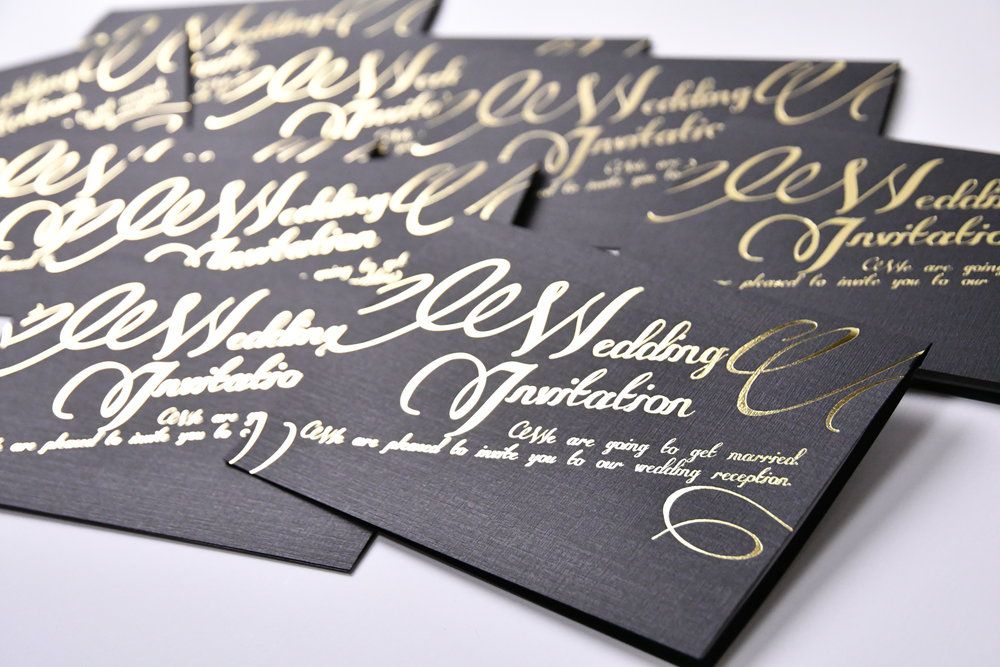 Wedding
Wedding
Wedding
Invitation
Wedding
Invitation
We are going
pleased to invite you to our
Wedding
Invitation
Wedding
Invitation
We are
are pleased to invite you to
Wedding
Invitation
We are going to get married.
We are pleased to invite you to our wedding reception.